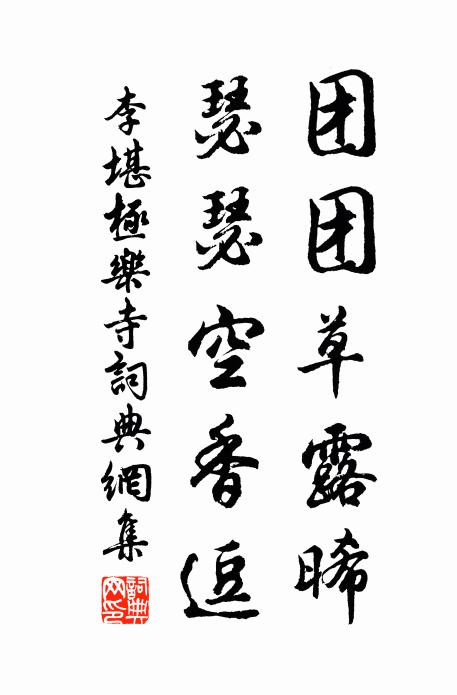 团团草露晞
瑟瑟空香逗
李堪極樂寺詞典網集
詞典网印